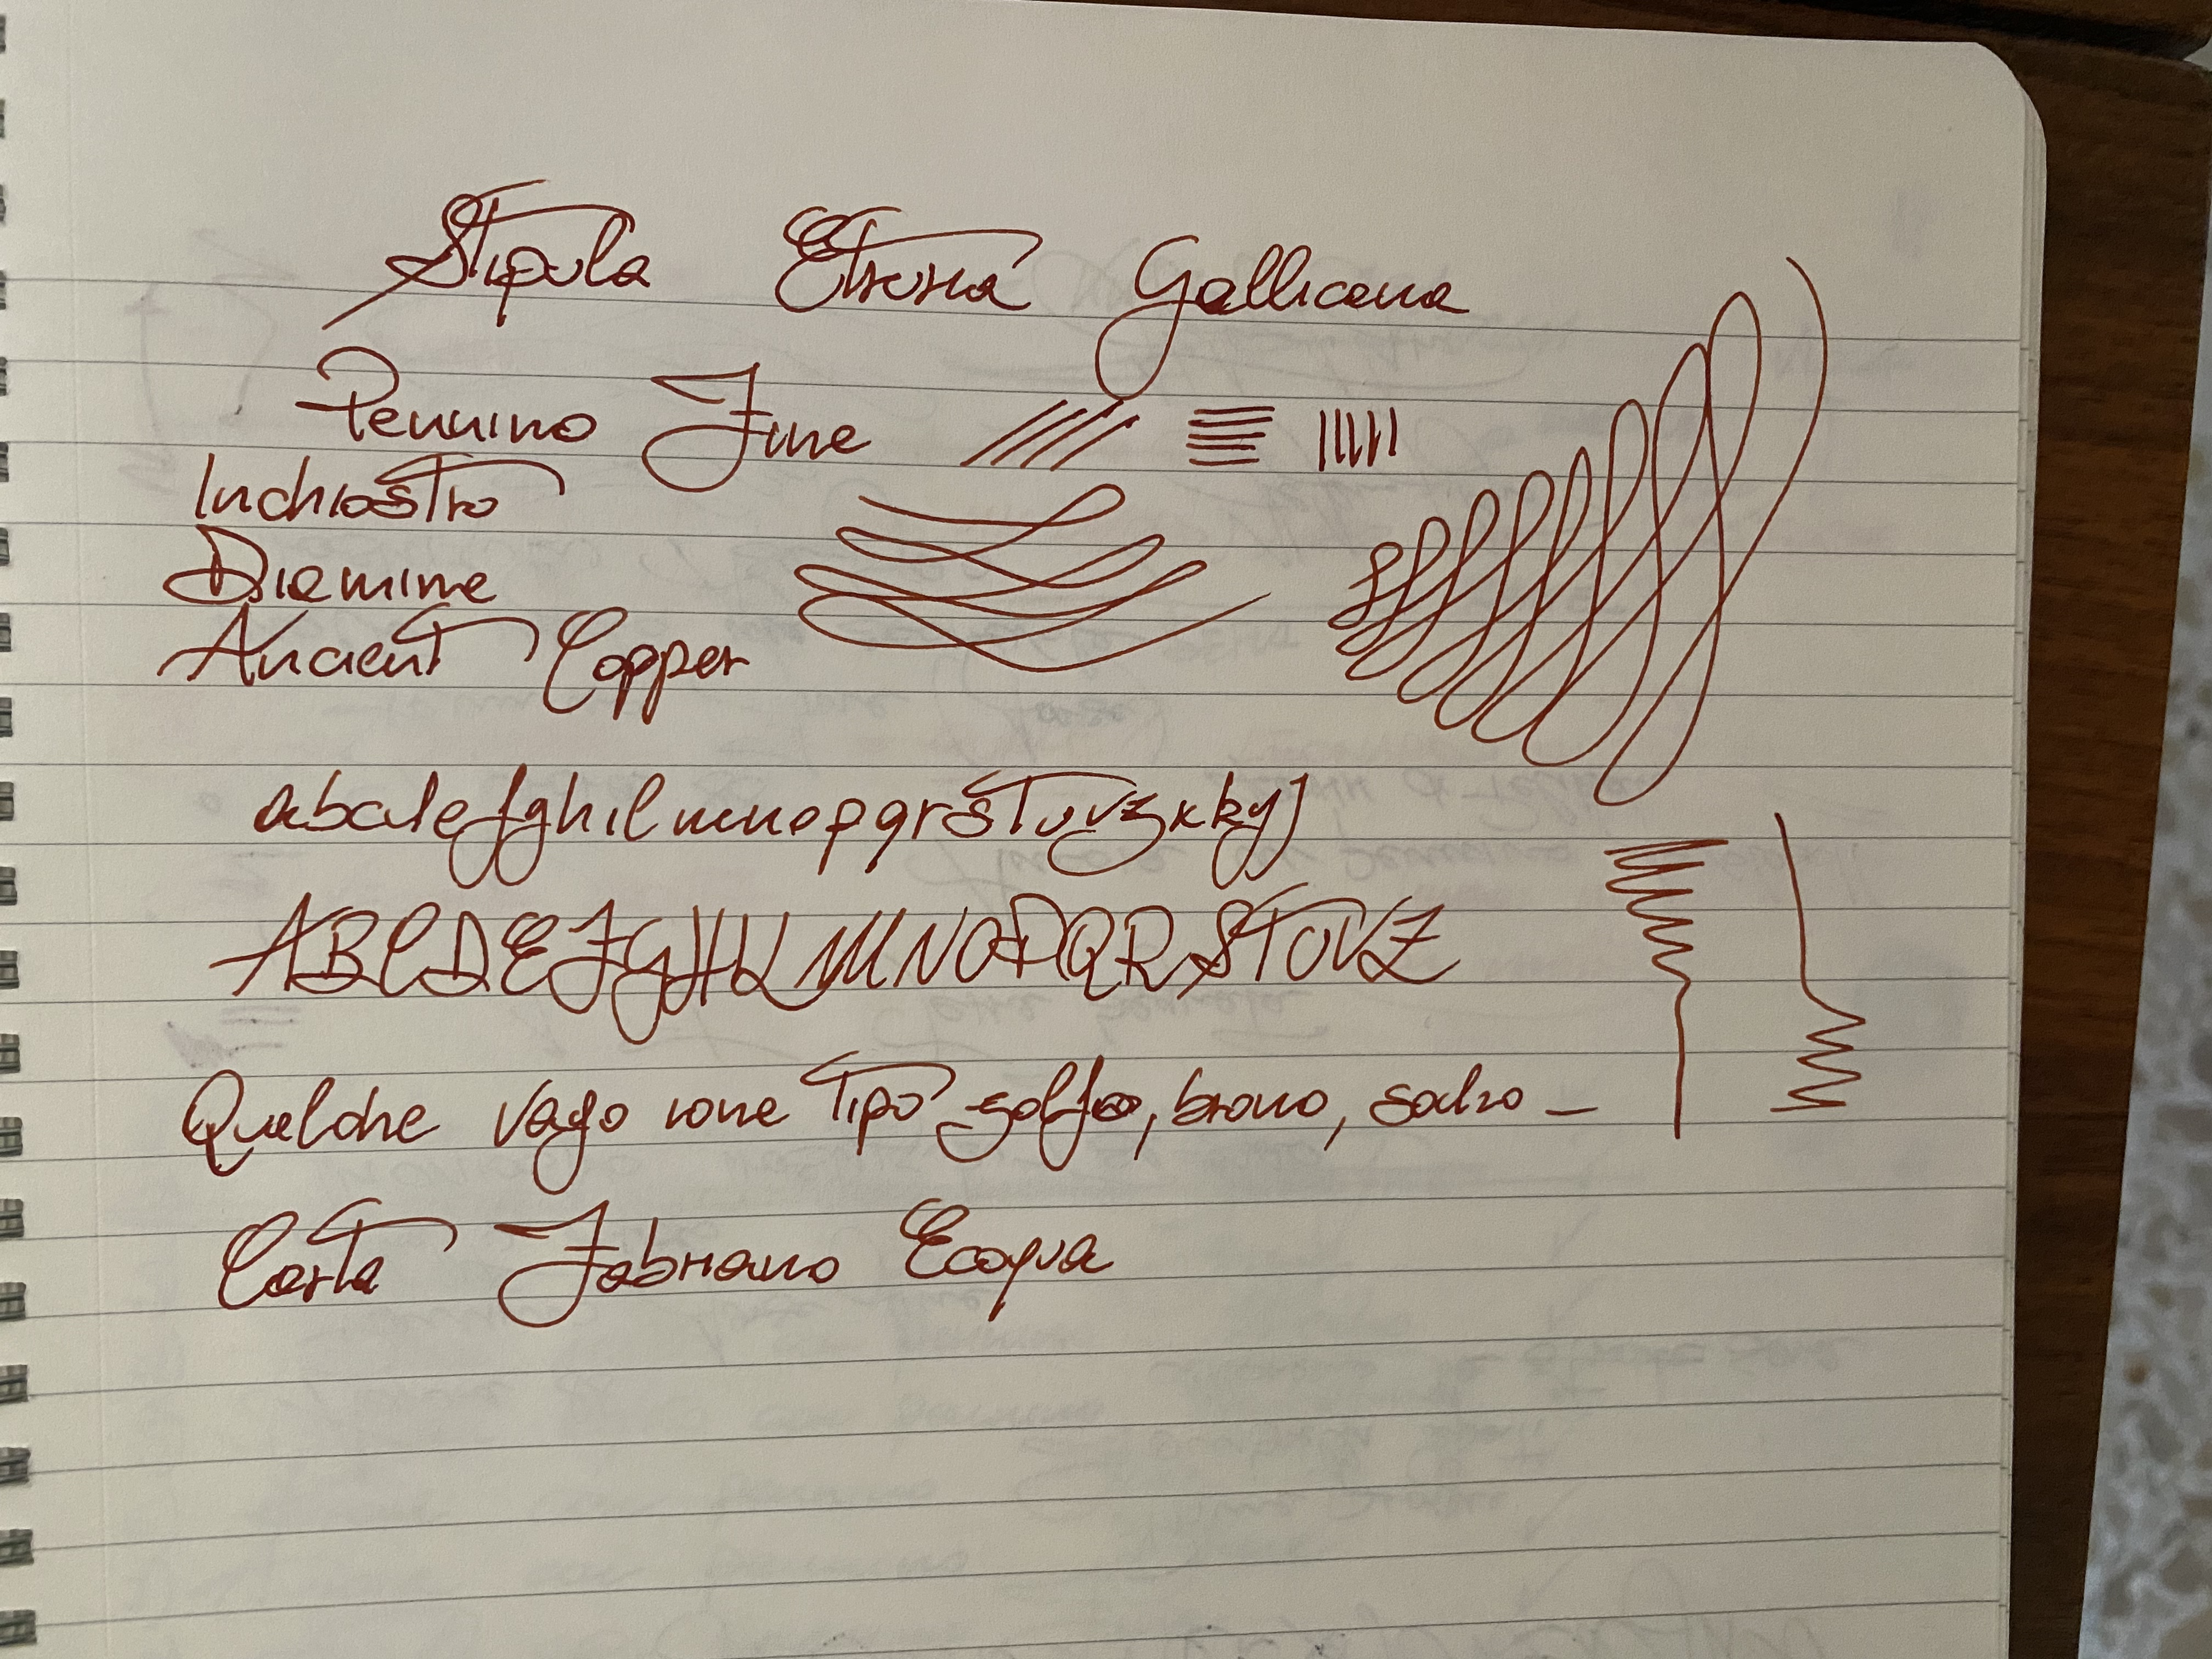 Stipula Etruria Gallicana
Pennino Fine
Inchiostro
Diamine
Ancient Copper
abcdefghilmnopqrstuvzxkyj
ABCDEFGHILMNOPQRSTUVZ
Qualche vago rone tipo golfo, bravo, salvo –
Carta Fabriano Ecoqua